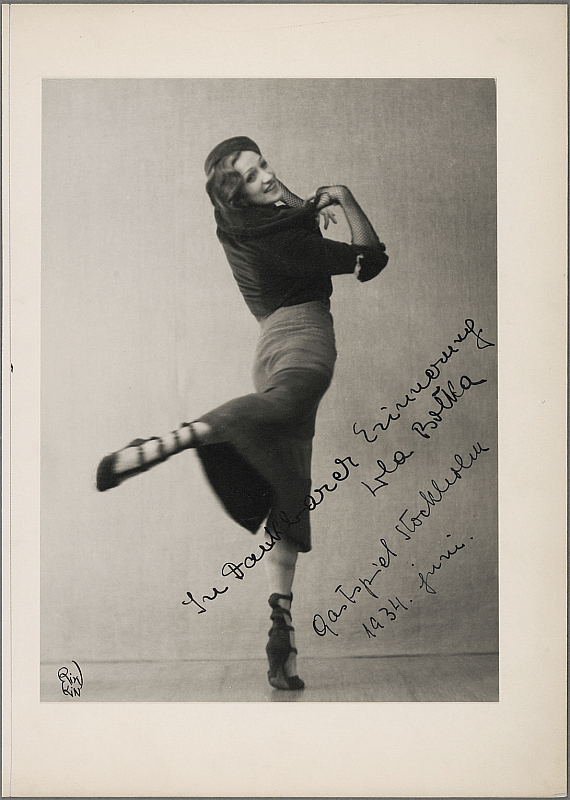 In Dankbarer Erinnerung
Lola Botka
Gastspiel Stockholm
1934. juni.